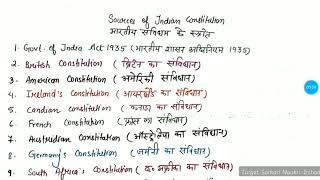 Sources of Indian Constitution
भारतीय संविधान के स्त्रोत
1. Govt. of India Act 1935 (भारतीय शासन अधिनियम 1935)
2. British Constitution (ब्रिटेन का संविधान)
3. American Constitution (अमेरिकी संविधान)
4. Ireland's Constitution (आयरलैंड का संविधान)
5. Candian Constitution (कनाडा का संविधान)
6. French Constitution (फ्रांस का संविधान)
7. Australian Constitution (ऑस्ट्रेलिया का संविधान)
8. Germany's Constitution (जर्मनी का संविधान)
9. South Africa's Constitution (द. अफ्रीका का संविधान)
Target Sarkari Naukri